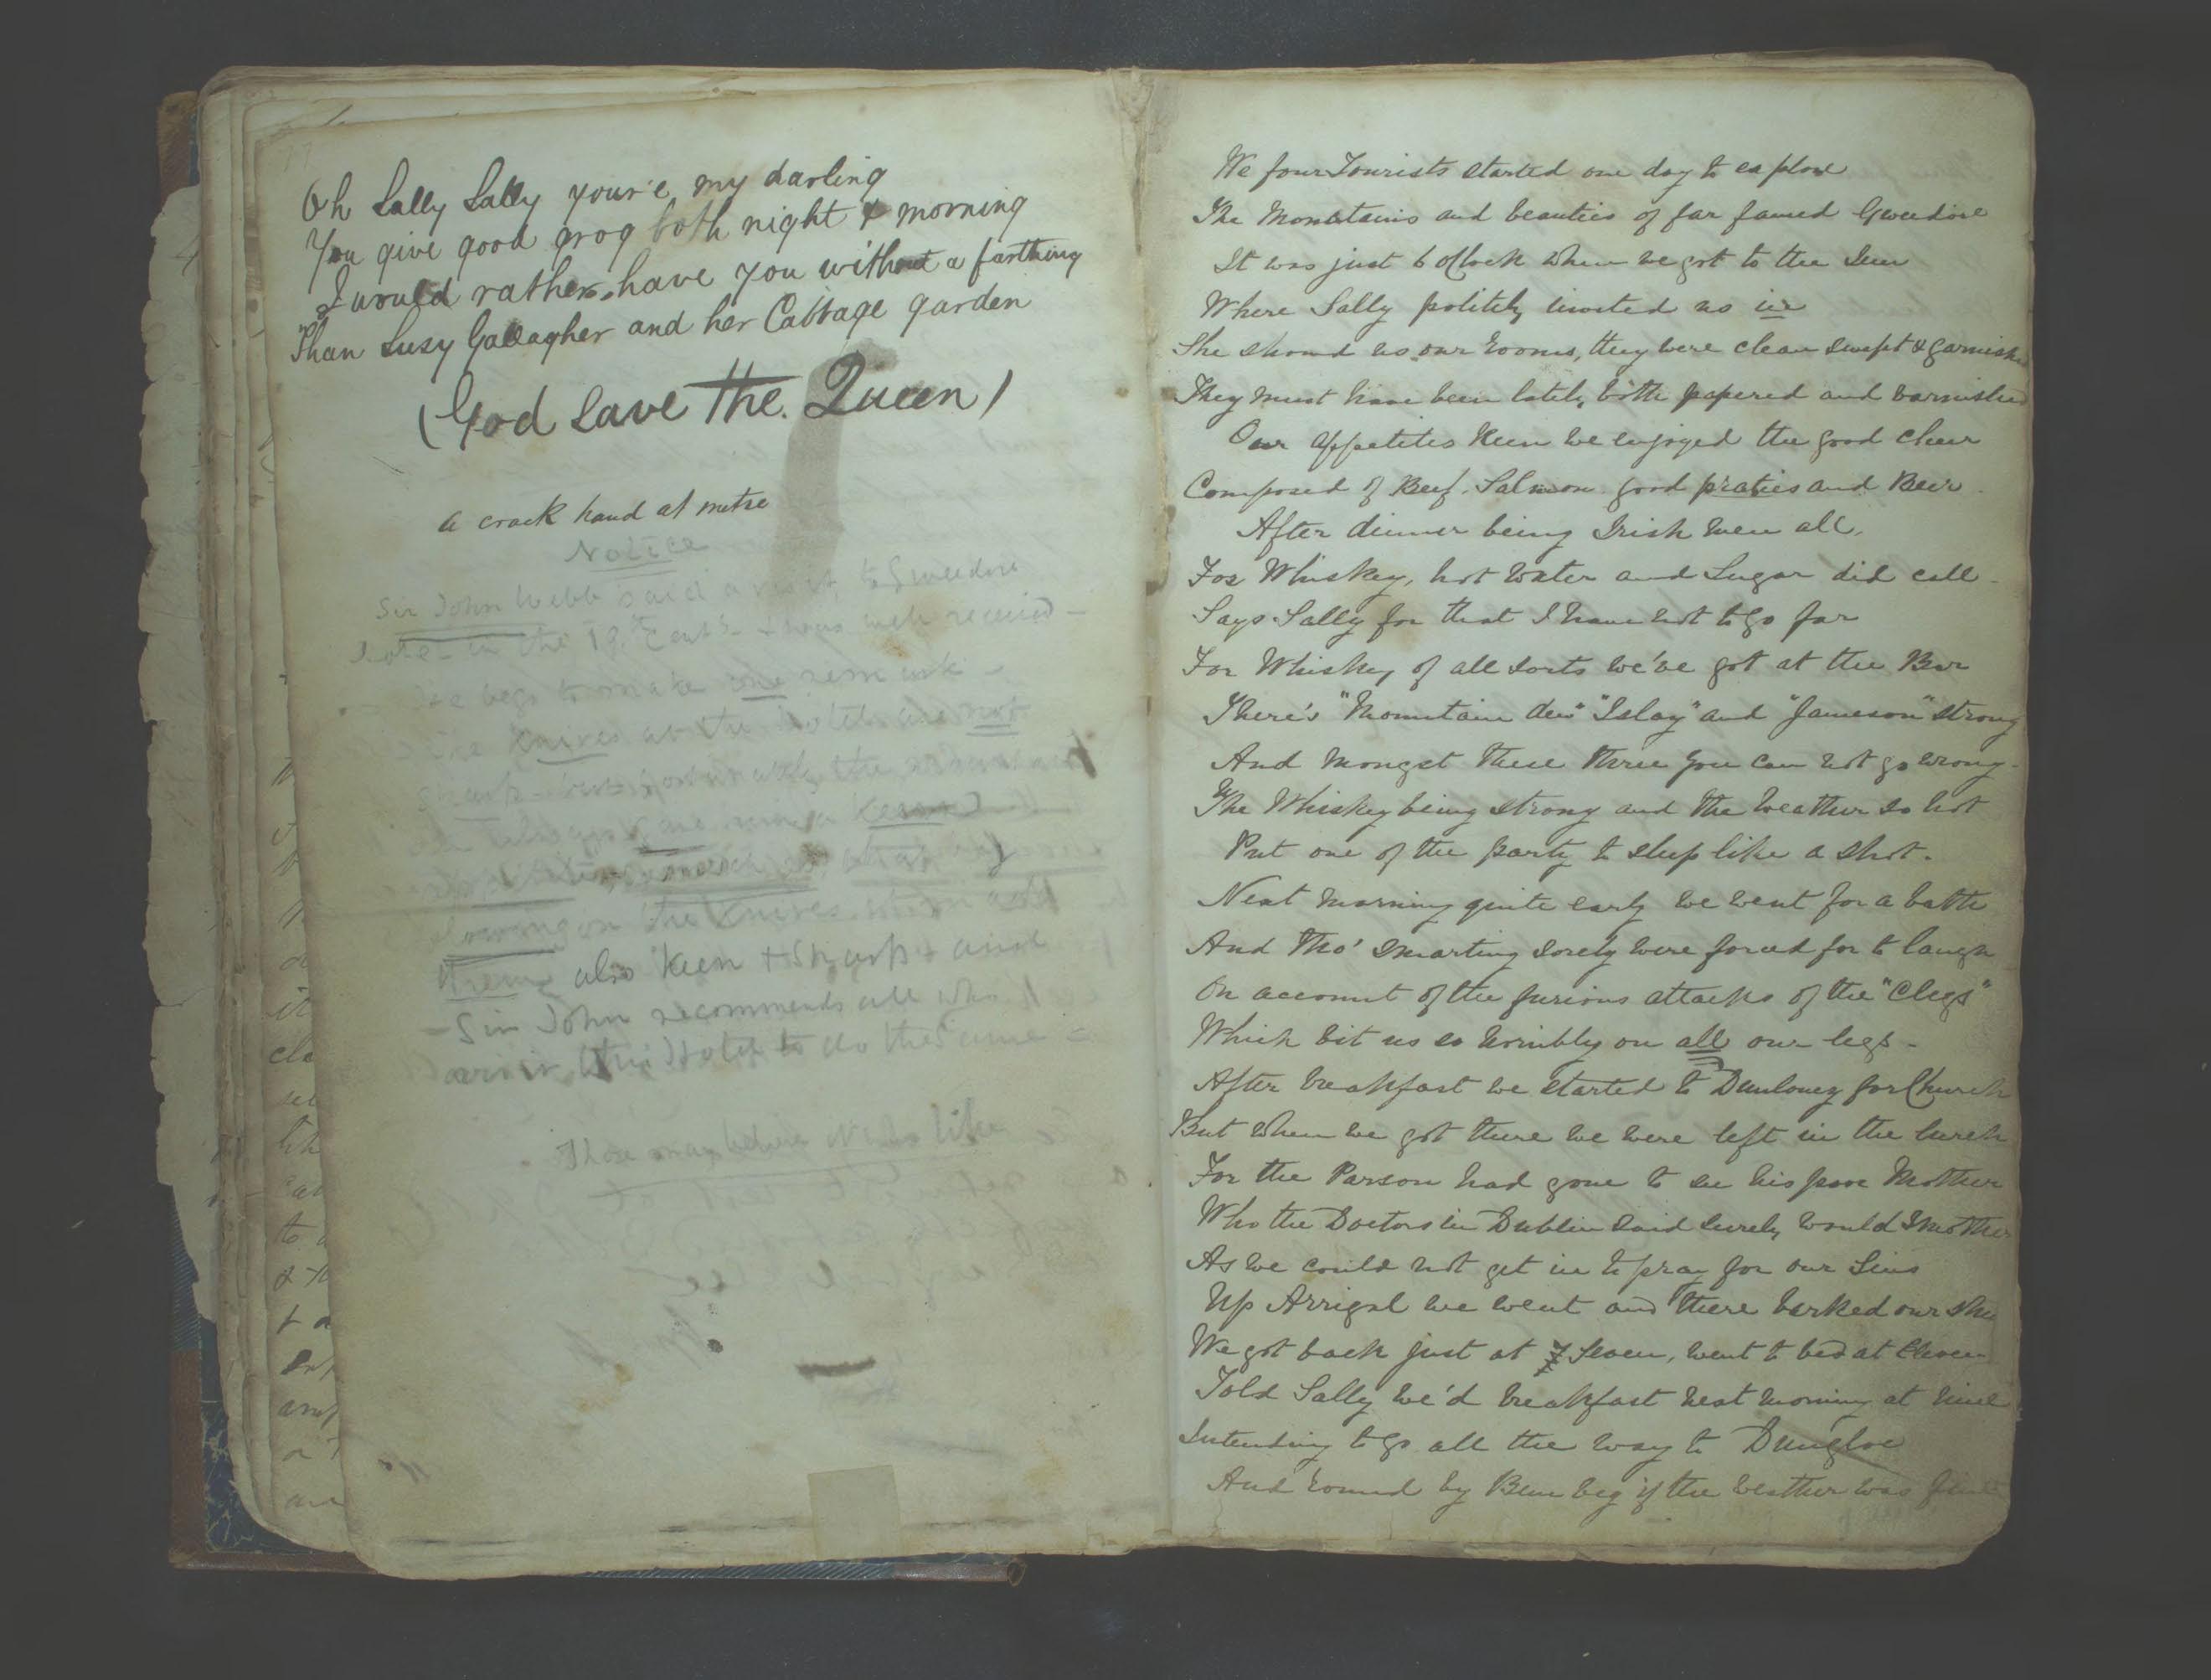 Oh Sally Sally your'e my darling
You give good grog both night & morning
I would rather have you without a farthing
Than Susy Gallagher and her Cabbage garden
(God Save the Queen)
a crack hand at metre
Notice
Sir John Webb paid a visit to Gweedore
Hotel in the 19th Cent & was well received -
He begs to make one remark -
The knives at the hotel are not
sharp - but fortunately the
always a keen
appetite
on the knives
them also keen & sharp & and
- Sir John recommends all who
visit this Hotel to do the same
Those may believe who like
We four Tourists started one day to explore
The Mountains and beauties of far famed Gweedore
It was just 6 oClock when we got to the Inn
Where Sally politely invited us in
She showed us our rooms, they were clean swept & garnished
They must have been lately both papered and varnished
Our appetites keen we enjoyed the good cheer
Composed of Beef, Salmon good praties and Beer
After dinner being Irish men all,
For Whiskey, hot water and Sugar did call -
Says Sally for that I have not to go far
For Whiskey of all sorts we've got at the Bar
There's "Mountain dew" "Islay" and "Jameson" strong
And mongst these three you can not go wrong -
The Whiskey being strong and the weather so hot
Put one of the party to sleep like a shot.
Next morning quite early we went for a bathe
And tho' smarting sorely were forced for to laugh
On account of the furious attacks of the "Clegs"
Which bit us so horribly on all our legs -
After breakfast we started to Dunlowey for Church
But when we got there we were left in the lurch
For the Parson had gone to see his poor Mother
Who the Doctors in Dublin said surely would smother
As we could not get in to pray for our Sins
Up Arrigal we went and there barked our shins
We got back just at 7 Seven, went to bed at Eleven
Told Sally we'd breakfast next morning at nine
Intending to go all the way to Dungloe
And round by Bun beg if the weather was fine